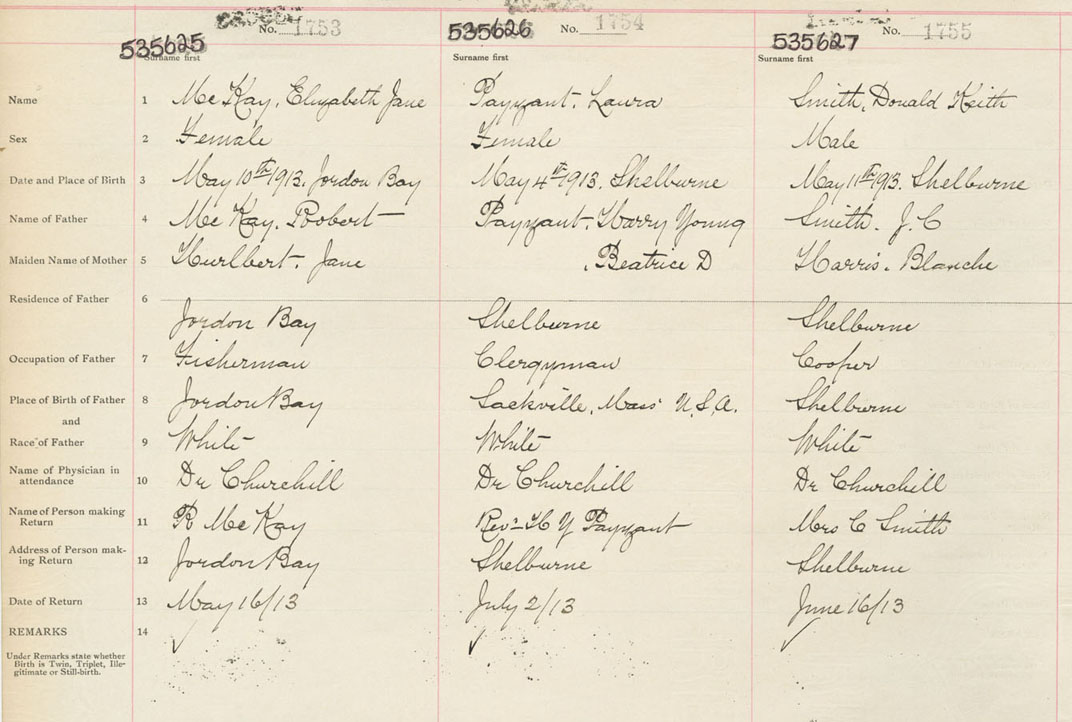 No. 1753 No. 1754 No. 1755
535625 535626 535627
Surname first Surname first Surname first
Name 1 Mc Kay, Elizabeth Jane Payzant, Laura Smith, Donald Keith
Sex 2 Female Female Male
Date and Place of Birth 3 May 10th 1913. Jordon Bay May 4th 1913. Shelburne May 11th 1913. Shelburne
Name of Father 4 Mc Kay. Robert Payzant. Harry Young Smith. J. C
Maiden Name of Mother 5 Hurlbert. Jane . Beatrice D Harris. Blanche
Residence of Father 6
Jordon Bay Shelburne Shelburne
Occupation of Father 7 Fisherman Clergyman Cooper
Place of Birth of Father 8 Jordon Bay Sackville, Mass U.S.A. Shelburne
and
Race of Father 9 White White White
Name of Physician in
attendance 10 Dr Churchill Dr Churchill Dr Churchill
Name of Person making
Return 11 R Mc Kay Rev. H Y Payzant Mrs C Smith
Address of Person mak-
ing Return 12 Jordon Bay Shelburne Shelburne
Date of Return 13 May 16/13 July 2/13 June 16/13
REMARKS 14
Under Remarks state whether
Birth is Twin, Triplet, Ille-
gitimate or Still-birth.